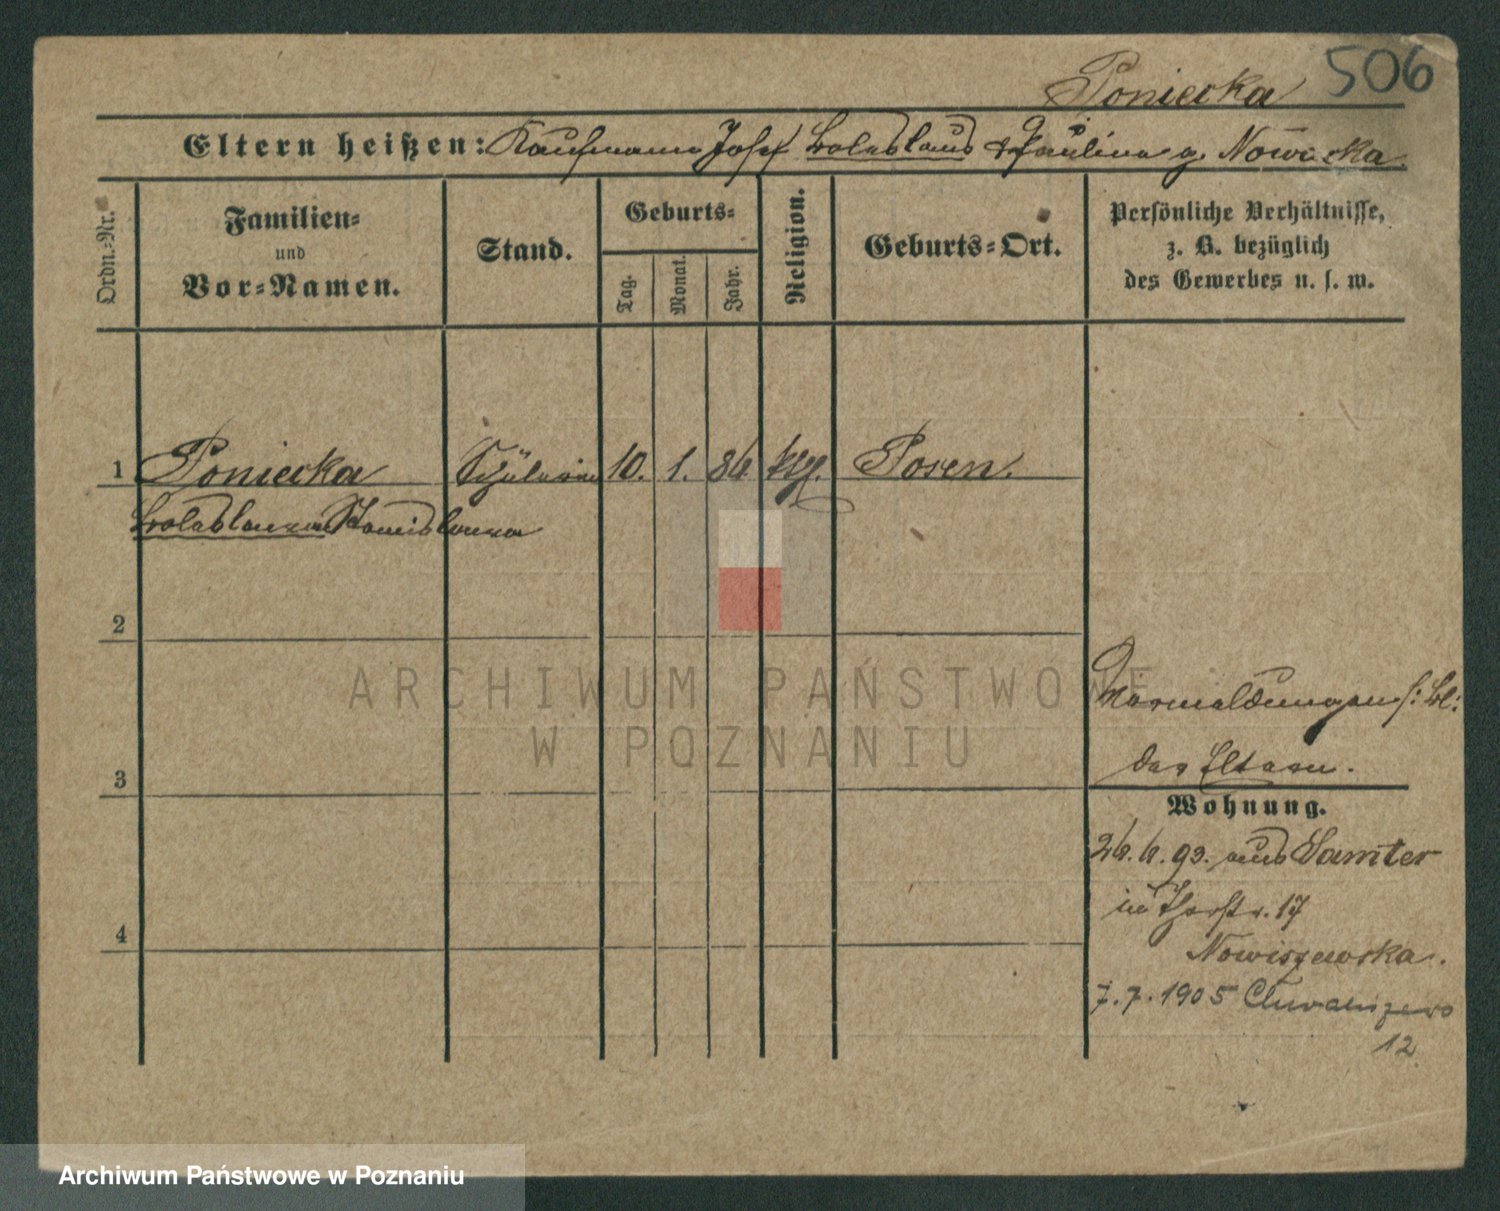 Poniecka 506
Eltern heißen: Kaufmann Josef Boleslaus & Paulina g. Nowicka
Ordn.-Nr.
Familien-
und
Vor-Namen.
Stand.
Geburts-
Tag.
Monat.
Jahr.
Religion.
Geburts-Ort.
Persönliche Verhältnisse,
z. B. bezüglich
des Gewerbes u. s. w.
1 Poniecka Schülerin 10. 1. 86. Posen.
Boleslawa Stanislawa
2
3
4
der Eltern.
Wohnung.
26. 6. 93. aus Samter
in 17
Nowiszewska.
7. 7. 1905 Chwaliszewo
12
ARCHIWUM PAŃSTWOWE
W POZNANIU
Archiwum Państwowe w Poznaniu